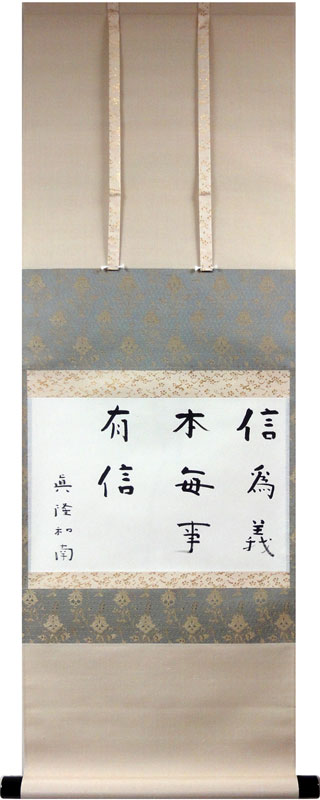 信為義
本每事
有信
眞陸和南